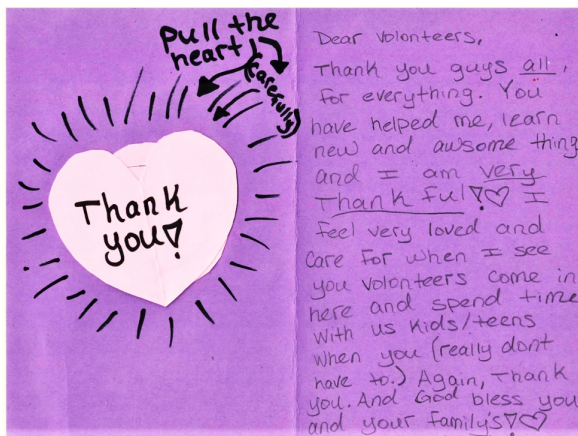 Pull the
heart
(carefully)
Thank
you!
Dear Volunteers,
Thank you guys all,
for everything. You
have helped me, learn
new and awsome thing
and I am very
Thankful!♡ I
feel very loved and
care for when I see
you volunteers come in
here and spend time
with us kids/teens
when you (really dont
have to.) Again, Thank
you. And God bless you
and your family's!♡